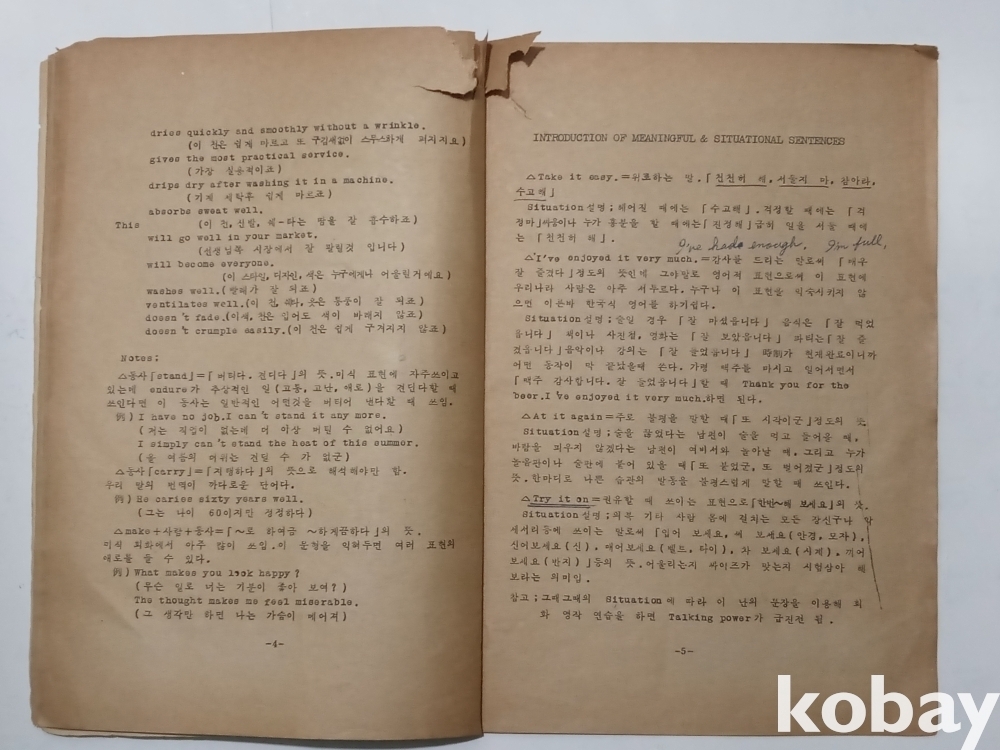 dries quickly and smoothly without a wrinkle.
(이 천은 쉽게 마르고 또 구김새없이 스무스하게 펴지지요)
gives the most practical service.
(가장 실용적이죠)
drips dry after washing it in a machine.
(기계 세탁후 쉽게 마르죠)
absorbs sweat well.
This (이 천, 신발, 쉐-타는 땀을 잘 흡수하죠)
will go well in your market.
(선생님쪽 시장에서 잘 팔릴것 입니다)
will become everyone.
(이 스타일, 디자인, 색은 누구에게나 어울릴거예요)
washes well.(빨래가 잘 되죠)
ventilates well.(이 천, 옷은 통풍이 잘 되죠)
doesn't fade.(이색, 천은 입어도 색이 바래지 않죠)
doesn't crumple easily.(이 천은 쉽게 구겨지지 않죠)
Notes;
△동사「stand」=「버티다. 견디다」의 뜻.미식 표현에 자주쓰이고
있는데 endure가 추상적인 일(고통,고난,애로)을 견딘다할 때
쓰인다면 이 동사는 일반적인 어떤것을 버티어 낸다할 때 쓰임.
例) I have no job.I can't stand it any more.
(저는 직업이 없는데 더 이상 버틸 수 없어요)
I simply can't stand the heat of this summer.
(올 여름의 더위는 견딜 수 가 없군)
△동사「carry」=「지탱하다」의 뜻으로 해석해야만 함.
우리 말의 번역이 까다로운 단어다.
例) He caries sixty years well.
(그는 나이 60이지만 정정하다)
△make+사람+동사=「~로 하여금 ~하게끔하다」의 뜻.
미식 회화에서 아주 많이 쓰임.이 문형을 익혀두면 여러 표현의
애로를 풀 수 있다.
例) What makes you look happy?
(무슨 일로 너는 기분이 좋아 보여?)
The thought makes me feel miserable.
(그 생각만 하면 나는 가슴이 메어져)
-4-
INTRODUCTION OF MEANINGFUL & SITUATIONAL SENTENCES
△Take it easy.=위로하는 말.「천천히 해,서둘지 마,참아라,
수고해」
Situation설명;헤어질 때에는「수고해」.걱정할 때에는「걱
정마」싸움이나 누가 흥분을 할 때에는「진정해」급히 일을 서둘 때에
는「천천히 해」.
I've had enough. I'm full,
△I've enjoyed it very much.=감사를 드리는 말로써「매우
잘 즐겼다」정도의 뜻인데 그야말로 영어적 표현으로써 이 표현에
우리나라 사람은 아주 서두르다.누구나 이 표현을 익숙시키지 않
으면 이른바 한국식 영어를 하기쉽다.
Situation설명;술일 경우「잘 마셨읍니다」음식은「잘 먹었
읍니다」책이나 사진첩,영화는「잘 보았읍니다」파티는「잘 즐
겼읍니다」음악이나 강의는「잘 들었읍니다」時制가 현재완료이니까
어떤 동작이 막 끝났을때 쓴다.가령 맥주를 마시고 일어서면서
「맥주 감사합니다.잘 들었읍니다」할 때 Thank you for the
beer.I've enjoyed it very much.하면 된다.
△At it again=주로 불평을 말할 때「또 시작이군」정도의 뜻
Situation설명;술을 끊었다는 남편이 술을 먹고 들어올 때,
바람을 피우지 않겠다는 남편이 여비서와 놀아날 때,그리고 누가
놀음판이나 술판에 붙어 있을 때「또 붙었군,또 벌어졌군」정도의
뜻.한마디로 나쁜 습관의 발동을 불평스럽게 말할 때 쓰인다.
△Try it on=권유할 때 쓰이는 표현으로「한번~해 보세요」의 뜻.
Situation설명;의복 기타 사람 몸에 걸치는 모든 장신구나 악
세서리등에 쓰이는 말로써「입어 보세요,써 보세요(안경,모자),
신어보세요(신).매어보세요(벨트,타이),차 보세요(시계).끼어
보세요(반지)」등의 뜻.어울리는지 싸이즈가 맞는지 시험삼아 해
보라는 의미임.
참고;그때그때의 Situation에 따라 이 난의 문장을 이용해 회
화 영작 연습을 하면 Talking power가 급진전 됨.
-5-
kobay